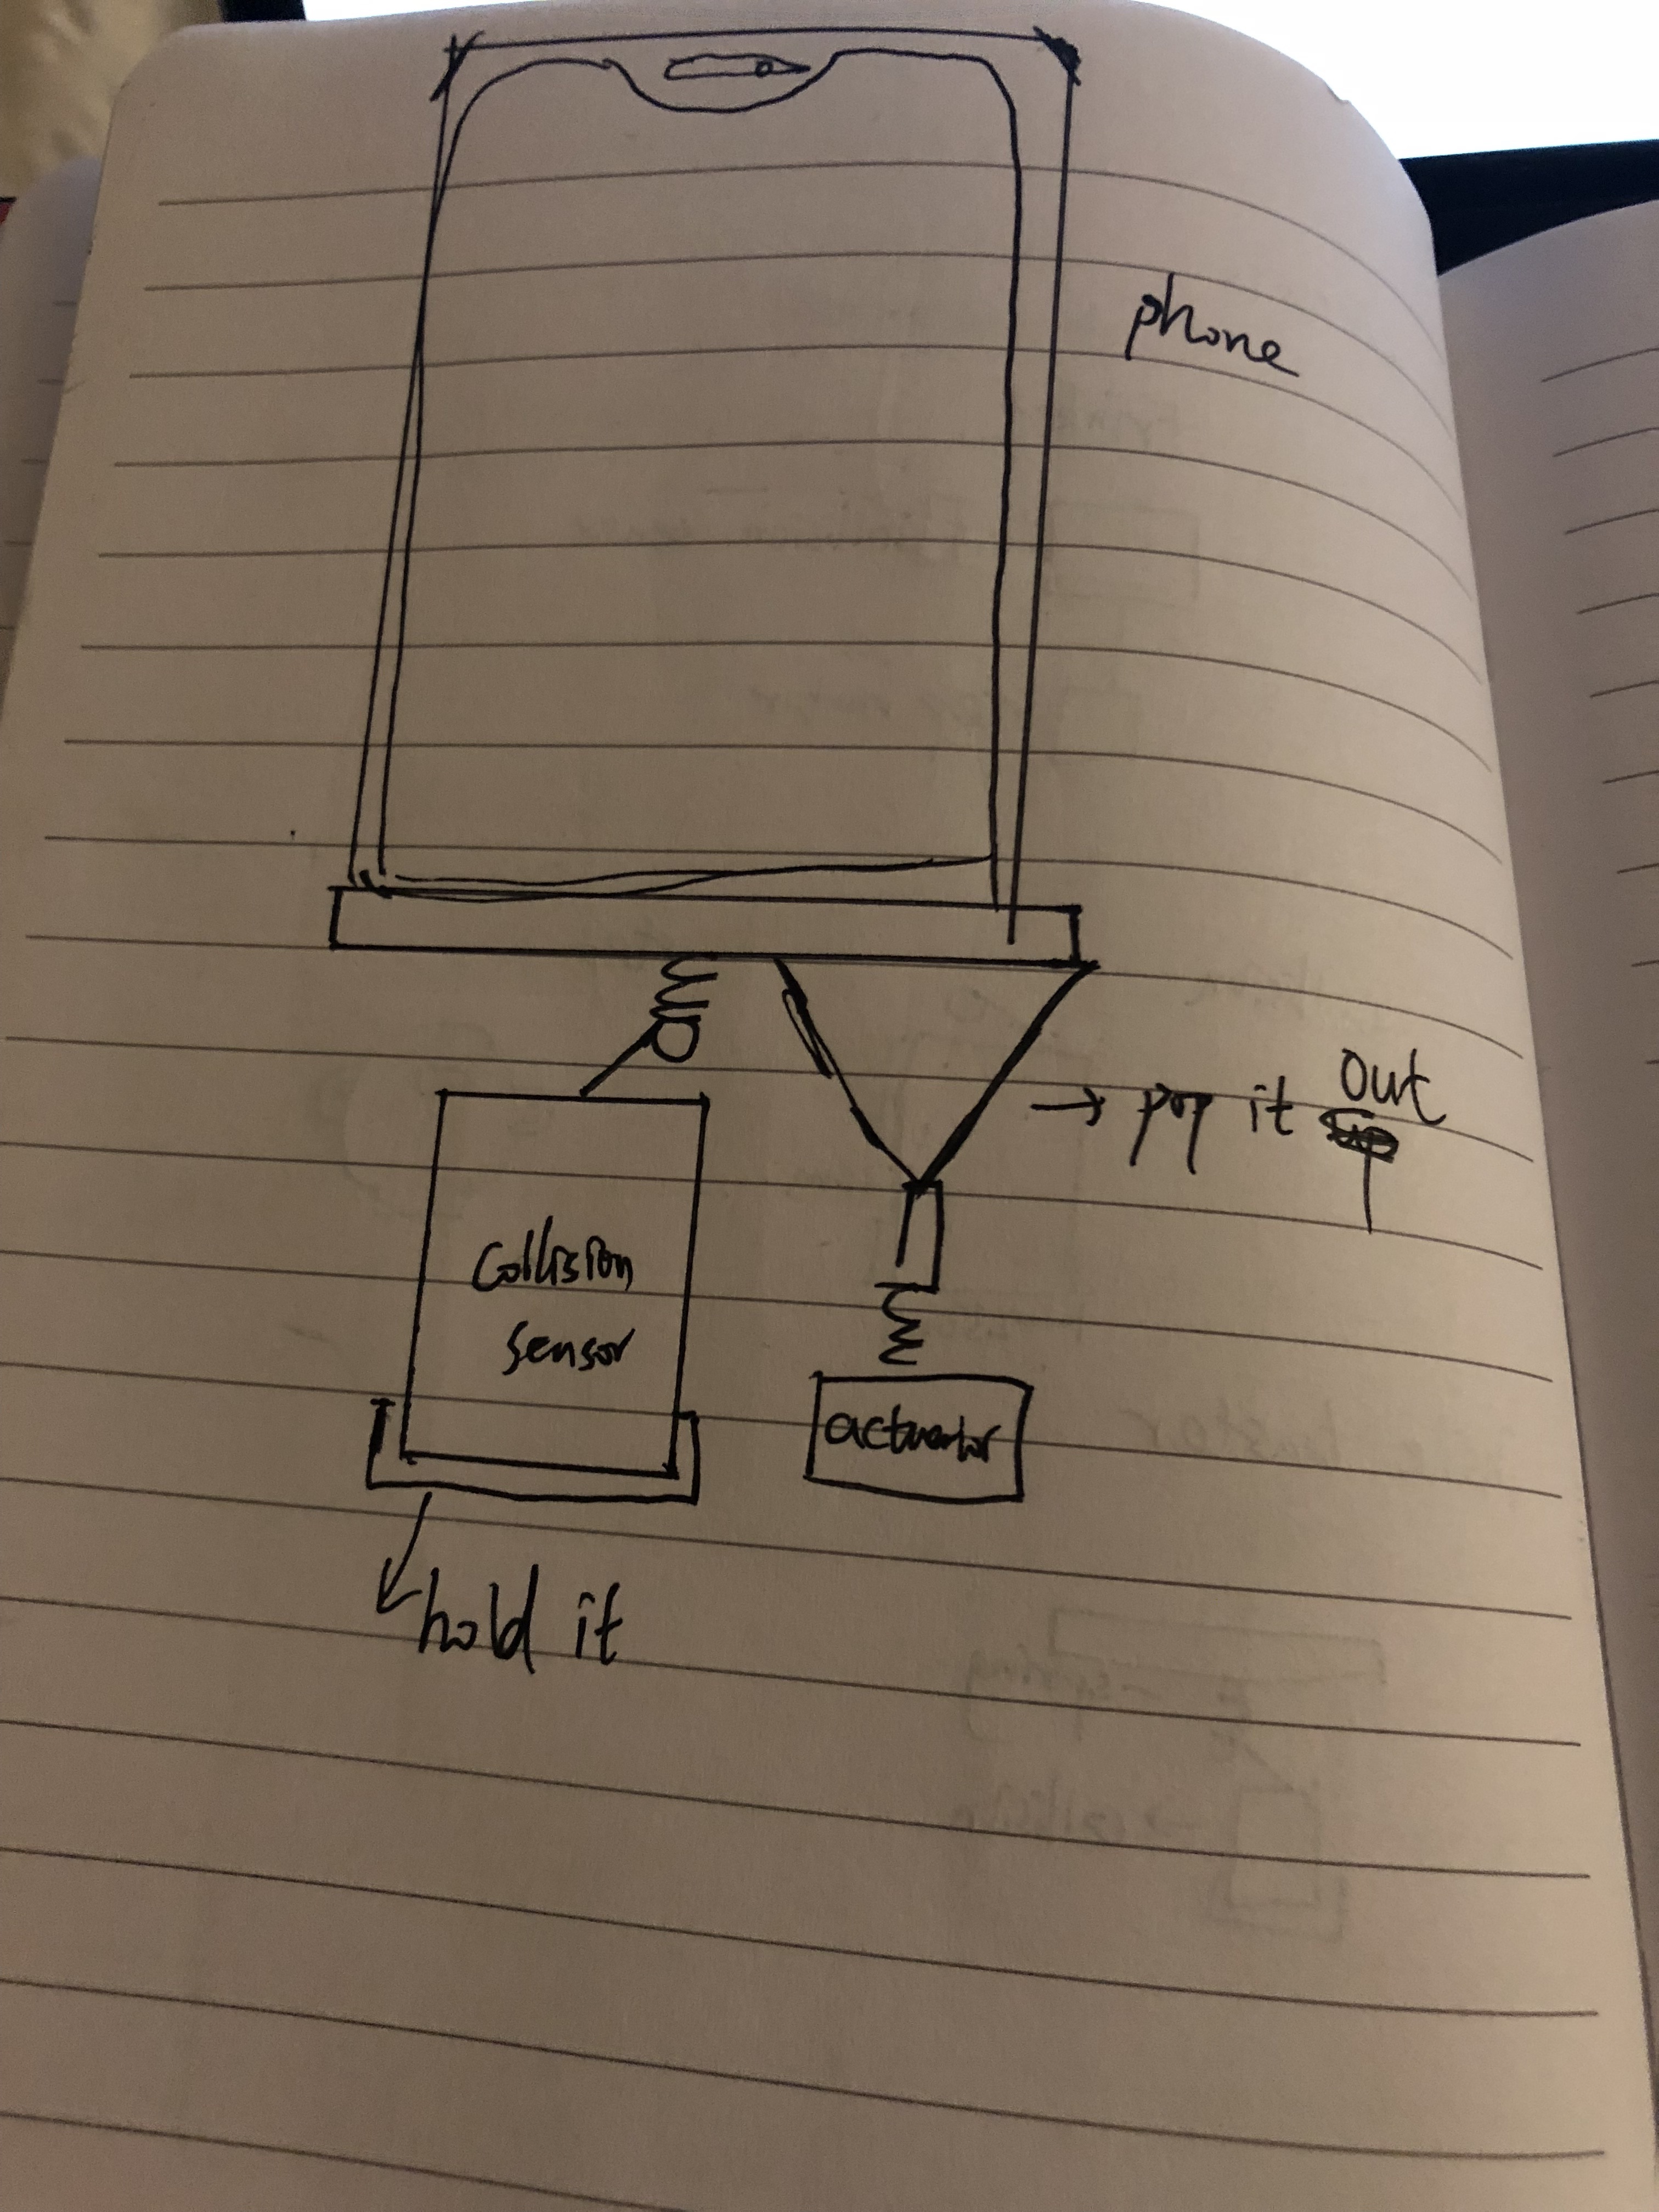 phone
out
→ pop it up
Collision
sensor
actuator
hold it